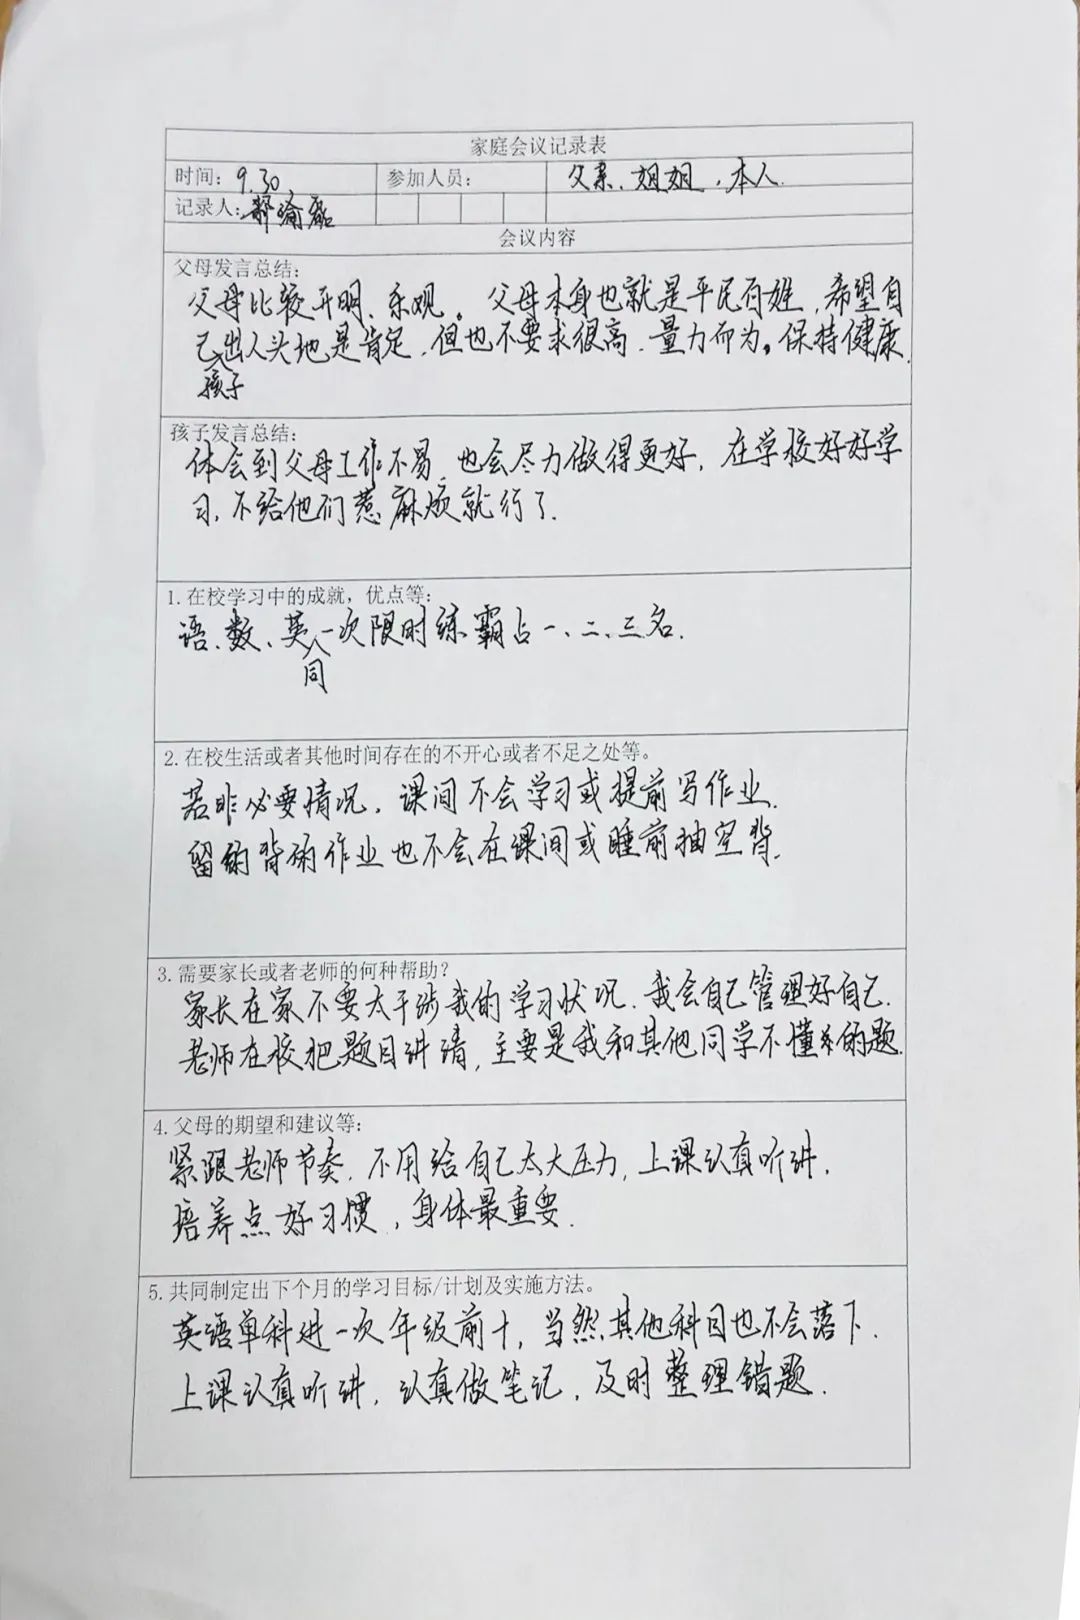 家庭会议记录表
时间：9.30 参加人员： 父亲、姐姐、本人.
记录人：瑜磊
会议内容
父母发言总结：
父母比较开明、乐观。父母本身也就是平民百姓，希望自
己孩子出人头地是肯定，但也不要求很高．量力而为。保持健康.
孩子发言总结：
体会到父母工作不易，也会尽力做得更好，在学校好好学
习，不给他们惹麻烦就行了.
1. 在校学习中的成就，优点等：
语、数、英同一次限时练霸占一、二、三名.
2. 在校生活或者其他时间存在的不开心或者不足之处等。
若非必要情况，课间不会学习或提前写作业.
留的背的作业也不会在课间或睡前抽空背.
3. 需要家长或者老师的何种帮助？
家长在家不要太干涉我的学习状况．我会自己管理好自己.
老师在校把题目讲清，主要是我和其他同学不懂的题.
4. 父母的期望和建议等：
紧跟老师节奏，不用给自己太大压力，上课认真听讲.
培养点好习惯，身体最重要.
5. 共同制定出下个月的学习目标/计划及实施方法。
英语单科进一次年级前十，当然其他科目也不会落下.
上课认真听讲，认真做笔记，及时整理错题.